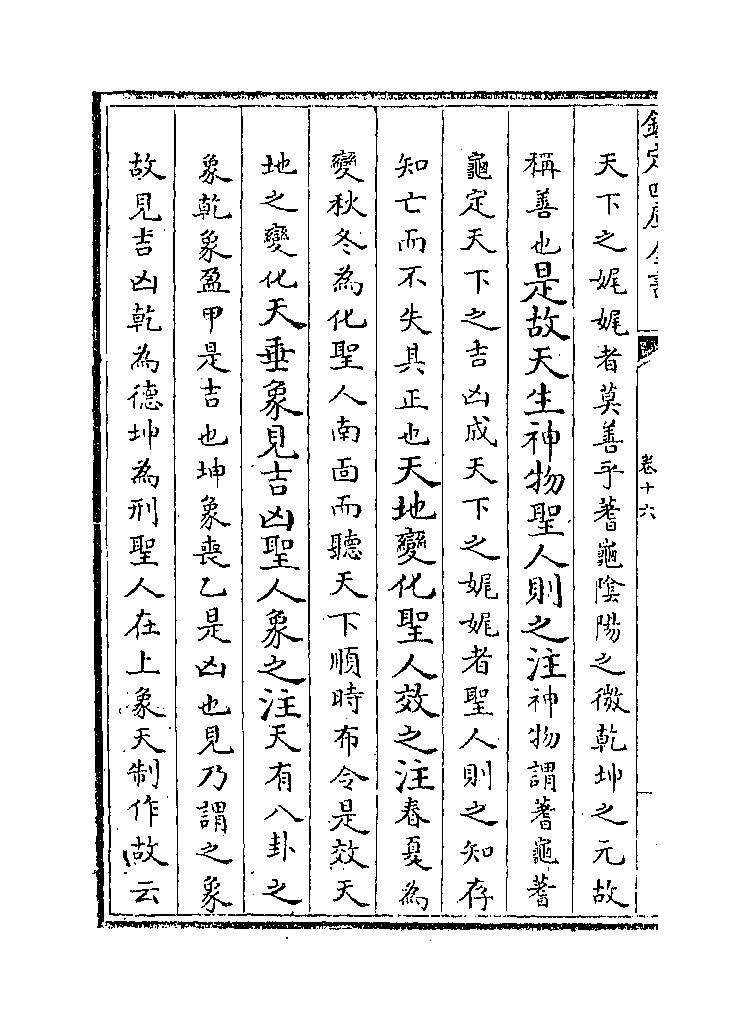 欽定四庫全書
卷十六
天下之娓娓者莫善乎蓍龜隂陽之微乾坤之元故
稱善也是故天生神物聖人則之注神物謂蓍龜蓍
龜定天下之吉凶成天下之娓娓者聖人則之知存
知亡而不失其正也天地變化聖人效之注春夏為
變秋冬為化聖人南面而聽天下順時布令是效天
地之變化天垂象見吉凶聖人象之注天有八卦之
象乾象盈甲是吉也坤象喪乙是凶也見乃謂之象
故見吉凶乾為德坤為刑聖人在上象天制作故云